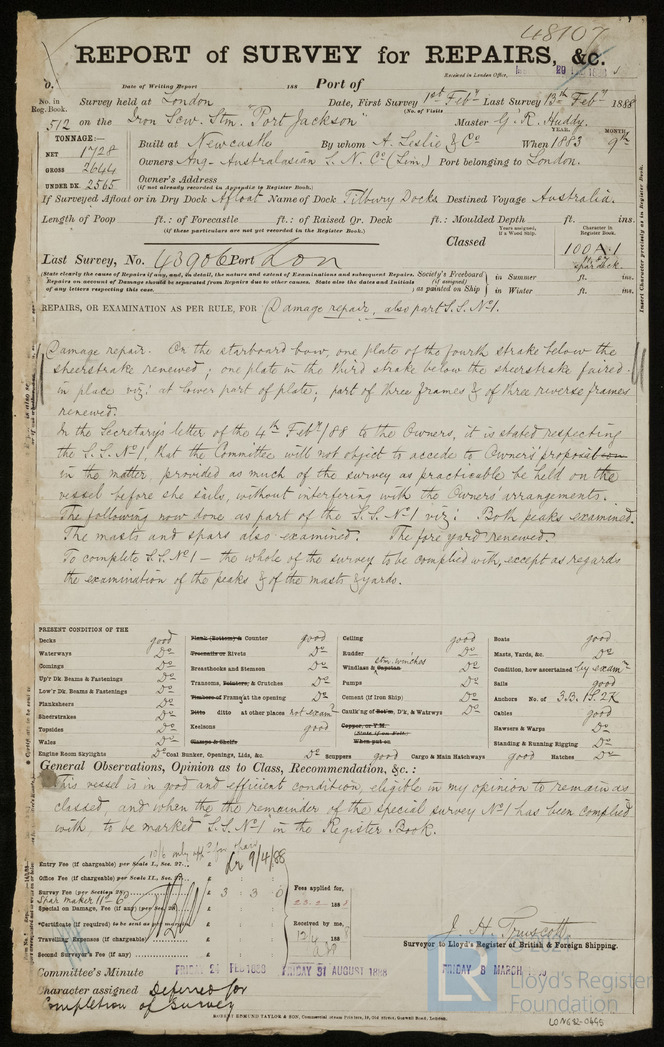 48107
REPORT of SURVEY for REPAIRS, &c.
Received in London Office,
o. Date of Writing Report 188 Port of
No. in Reg. Book. Survey held at London Date, First Survey 1st Feby Last Survey 13th Feby 1888
(No. of Visits
512 on the Iron Scw. Stm. "Port Jackson" Master G. R. Huddy.
TONNAGE:— YEAR. MONTH
NET 1728 Built at Newcastle By whom A. Leslie & Co When 1883 9th
GROSS 2644 Owners Ang-Australasian S. N. Co (Lim.) Port belonging to London.
UNDER DK. 2565 Owner's Address
(if not already recorded in Appendix to Register Book.)
If Surveyed Afloat or in Dry Dock Afloat Name of Dock Tilbury Docks Destined Voyage Australia.
Length of Poop ft.: of Forecastle ft.: of Raised Qr. Deck ft.: Moulded Depth ft. ins.
(if these particulars are not yet recorded in the Register Book.)
Years assigned, if a Wood Ship. Character in Register Book.
Classed 100 A 1
spar deck.
Last Survey, No. 43906 Port Lon
(State clearly the cause of Repairs if any, and, in detail, the nature and extent of Examinations and subsequent Repairs.
Repairs on account of Damage should be separated from Repairs due to other causes. State also the dates and Initials
of any letters respecting this case.
Society's Freeboard (if assigned) as painted on Ship in Summer ft. ins.
in Winter ft. ins.
Insert Character precisely as in Register Book.
REPAIRS, OR EXAMINATION AS PER RULE, FOR Damage repair, also part S.S. No 1.
Damage repair. On the starboard bow, one plate of the fourth strake below the
sheerstrake renewed; one plate in the third strake below the sheerstrake faired
in place viz: at lower part of plate; part of three frames & of three reverse frames
renewed.
In the Secretary's letter of the 4th Feby/88 to the Owners, it is stated respecting
the S.S. No 1, that the Committee will not object to accede to Owners' proposition
in the matter, provided as much of the survey as practicable be held on the
vessel before she sails, without interfering with the Owners' arrangements.
The following now done as part of the S.S. No 1 viz: Both peaks examined.
The masts and spars also examined. The fore yard renewed.
To complete S.S. No 1 — the whole of the survey to be complied with, except as regards
the examination of the peaks & of the masts & yards.
PRESENT CONDITION OF THE
Decks good
Waterways Do
Comings Do
Up'r Dk Beams & Fastenings Do
Low'r Dk. Beams & Fastenings Do
Planksheers Do
Sheerstrakes Do
Topsides Do
Wales Do
Engine Room Skylights Do
Plank (Bottom) & Counter good
Treenails or Rivets Do
Breasthooks and Stemson Do
Transoms, Pointers, & Crutches Do
Timbers of Frame at the opening Do
Ditto ditto at other places not examd
Keelsons good
Clamps & Shelfs
Coal Bunker, Openings, Lids, &c. Do
Ceiling good
Rudder Do
Windlass & Capstan stm. winches Do
Pumps Do
Cement (if Iron Ship) Do
Caulk'ng of Bot'm, D'k, & Watrwys Do
Copper, or Y.M.
(State if on Felt)
When put on
Scuppers good Cargo & Main Hatchways good
Boats good
Masts, Yards, &c. Do
Condition, how ascertained by examn
Sails good
Anchors No. of 3.B. 1S. 2K
Cables good
Hawsers & Warps Do
Standing & Running Rigging Do
Hatches Do
General Observations, Opinion as to Class, Recommendation, &c.:
This vessel is in good and efficient condition, eligible in my opinion to remain as
classed, and when the the remainder of the special survey No 1 has been complied
with, to be marked "S.S. No 1" in the Register Book.
Entry Fee (if chargeable) per Scale I., Sec. 27... £
Office Fee (if chargeable) per Scale II., Sec. 27... £
9/4/88
Survey Fee (per Section 28) £ 3 : 3 : 0
Spar maker 11s-6d
Special on Damage, Fee (if any) (per Sec. 28) £
*Certificate (if required) to be sent as per margin £
Travelling Expenses (if chargeable) £
Second Surveyor's Fee (if any) £
Fees applied for,
23.2.1888
Received by me,
188
J. H. Truscott
Surveyor to Lloyd's Register of British & Foreign Shipping.
Committee's Minute FRIDAY 24 FEB 1888 FRIDAY 31 AUGUST 1888 FRIDAY 8 MARCH
Character assigned Deferred for
Completion of Survey
ROBERT EDMUND TAYLOR & SON, Commercial Steam Printers, 19, Old Street, Goswell Road, London.
LR
Lloyd's Register
Foundation
LON632-0445